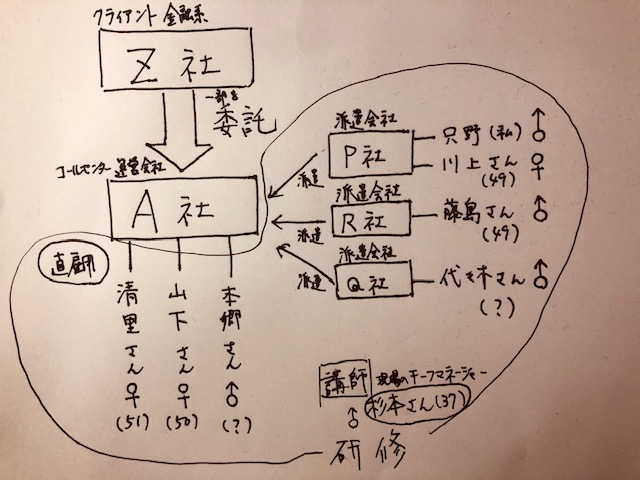 クライアント 金融系
Z 社
一部を
委託
コールセンター 運営会社
A 社
派遣会社
P 社
派遣
只野 (私) ♂
川上さん ♀
(49)
派遣会社
R 社
派遣
藤島さん ♂
(49)
派遣会社
Q 社
派遣
代々木さん ♂
(?)
直雇用
清里さん ♀
(51)
山下さん ♀
(50)
本郷さん ♂
(?)
講師
現場のチーフマネージャー
杉本さん(37)
♂
研修